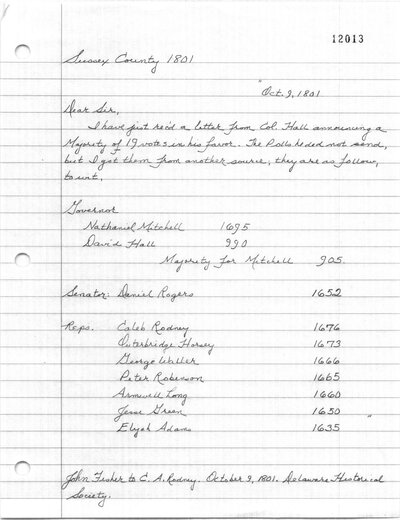 12013
Sussex County 1801
"Oct. 9, 1801
Dear Sir,
I have just rec'd a letter from Col. Hall announcing a
Majority of 19 votes in his favor. The Polls he ded not send,
but I got them from another source, they are as follow,
to wit,
Governor
Nathaniel Mitchell 1895
David Hall 990
Majority for Mitchell 905
Senator: Daniel Rogers 1652
Reps. Caleb Rodney 1676
Outerbridge Horsey 1673
George Waller 1666
Peter Robinson 1665
Armwell Long 1660
Jesse Green 1650 "
Elijah Adams 1635
John Fisher to C. A. Rodney. October 9, 1801. Delaware Historical
Society.